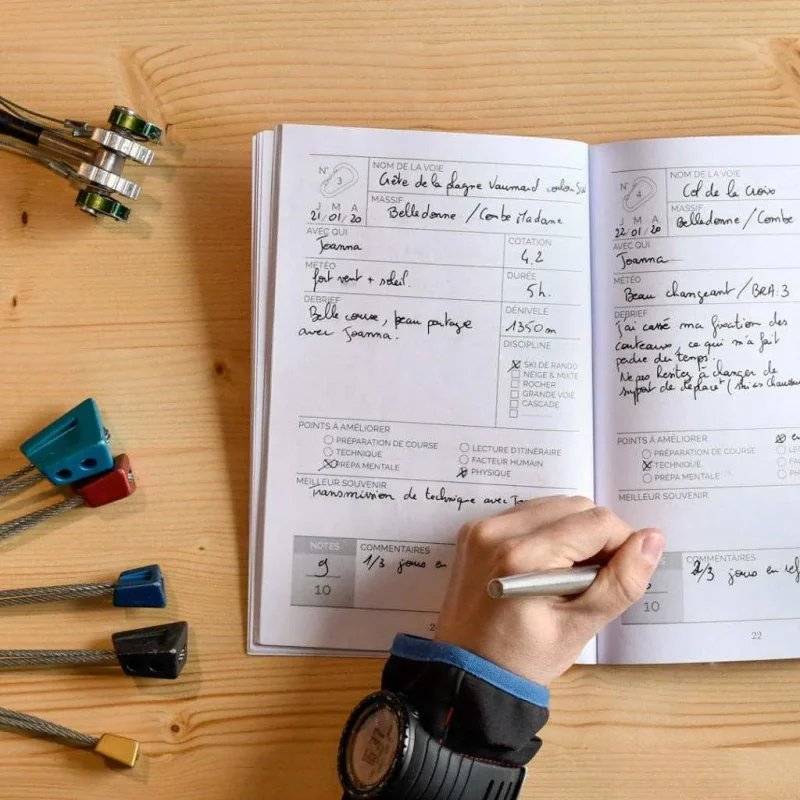 N° 3
NOM DE LA VOIE
Crête de la plagne Vaumard couloir Sud
J M A
21/01/20
MASSIF
Belledonne / Combe Madame
AVEC QUI
Joanna
COTATION
4.2
MÉTÉO
fort vent + soleil.
DURÉE
5h.
DEBRIEF
Belle course, beau partage
avec Joanna.
DÉNIVELÉ
1350m
DISCIPLINE
SKI DE RANDO
NEIGE & MIXTE
ROCHER
GRANDE VOIE
CASCADE
POINTS À AMÉLIORER
PRÉPARATION DE COURSE
TECHNIQUE
PREPA MENTALE
LECTURE D'ITINÉRAIRE
FACTEUR HUMAIN
PHYSIQUE
MEILLEUR SOUVENIR
Transmission de technique avec
NOTES
9
10
COMMENTAIRES
1/3 jours en
N° 4
NOM DE LA VOIE
Col de la Croix
J M A
22/01/20
MASSIF
Belledonne / Combe
AVEC QUI
Joanna
MÉTÉO
Beau changeant / BRA: 3
DEBRIEF
J'ai cassé ma fixation des
couteaux, ce qui m'a fait
perdre du temps.
Ne pas hésiter à changer de
support de déplact (skis
POINTS À AMÉLIORER
PRÉPARATION DE COURSE
TECHNIQUE
PREPA MENTALE
MEILLEUR SOUVENIR
10
COMMENTAIRES
2/3 jours en
22